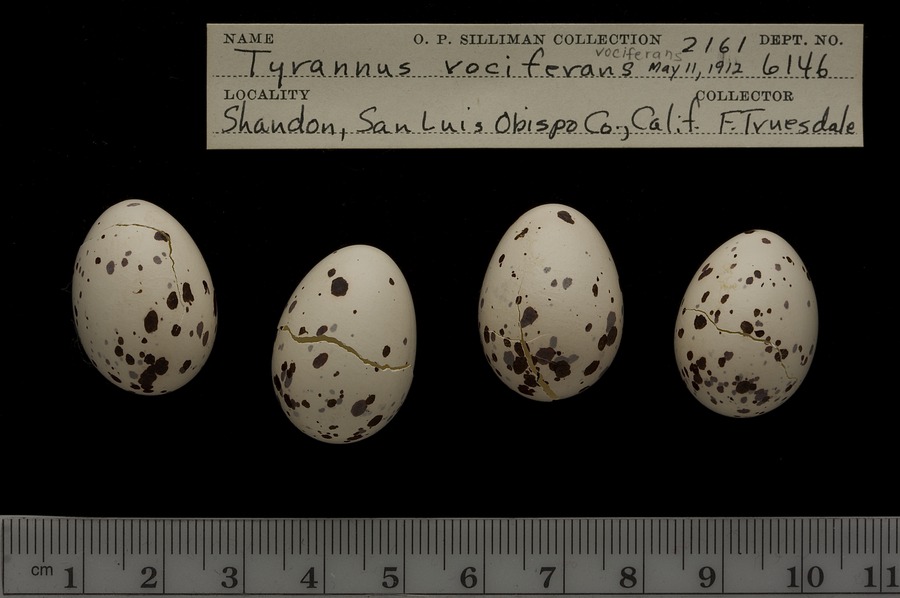 NAME O. P. SILLIMAN COLLECTION 2161 DEPT. NO.
vociferans
Tyrannus vociferans May 11, 1912 6146
LOCALITY COLLECTOR
Shandon, San Luis Obispo Co., Calif. F. Truesdale
cm 1 2 3 4 5 6 7 8 9 10 11